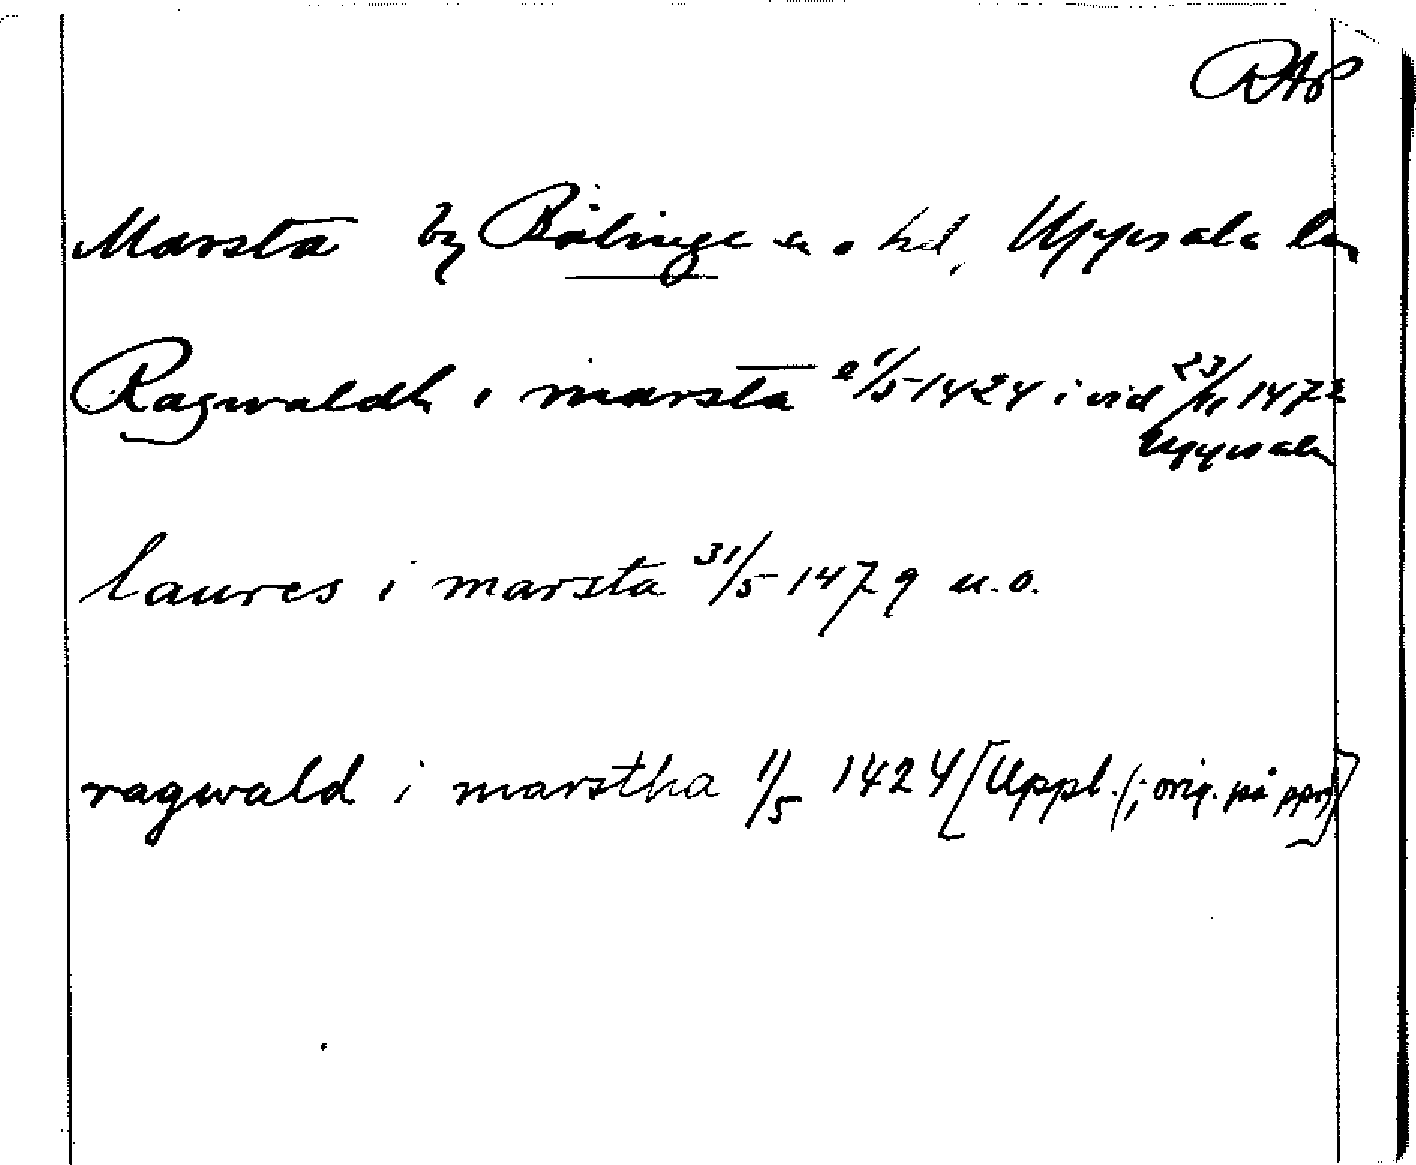 RAp
Marsta by Bälinge sn o hd, Uppsala län
Ragwaldh i marsta 1/5 1424 i vid 23/11 1472
Uppsala
laures i marsta 31/5 1479 u.o.
ragwald i marstha 1/5 1424 [Uppl. (; orig. på ppr)]